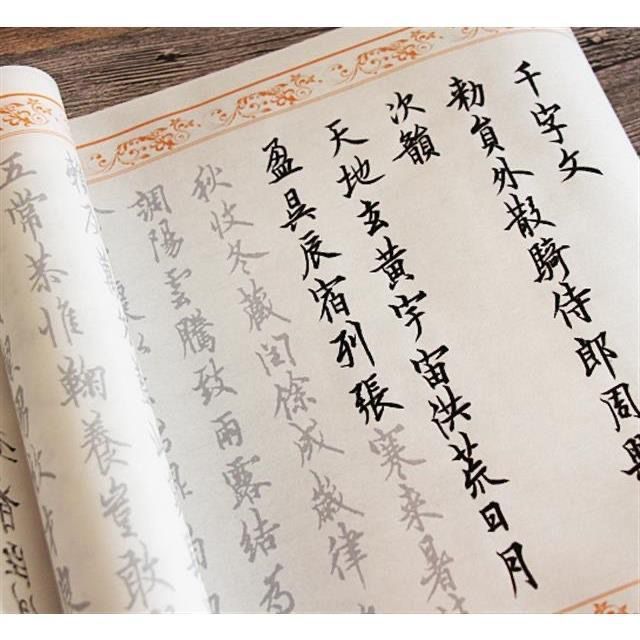 千字文
勅員外散騎侍郎周興
次韻
天地玄黃宇宙洪荒日月
盈昃辰宿列張寒来暑
秋收冬藏閏餘成歲律
調陽雲騰致雨露結為
五常恭惟鞠養豈敢